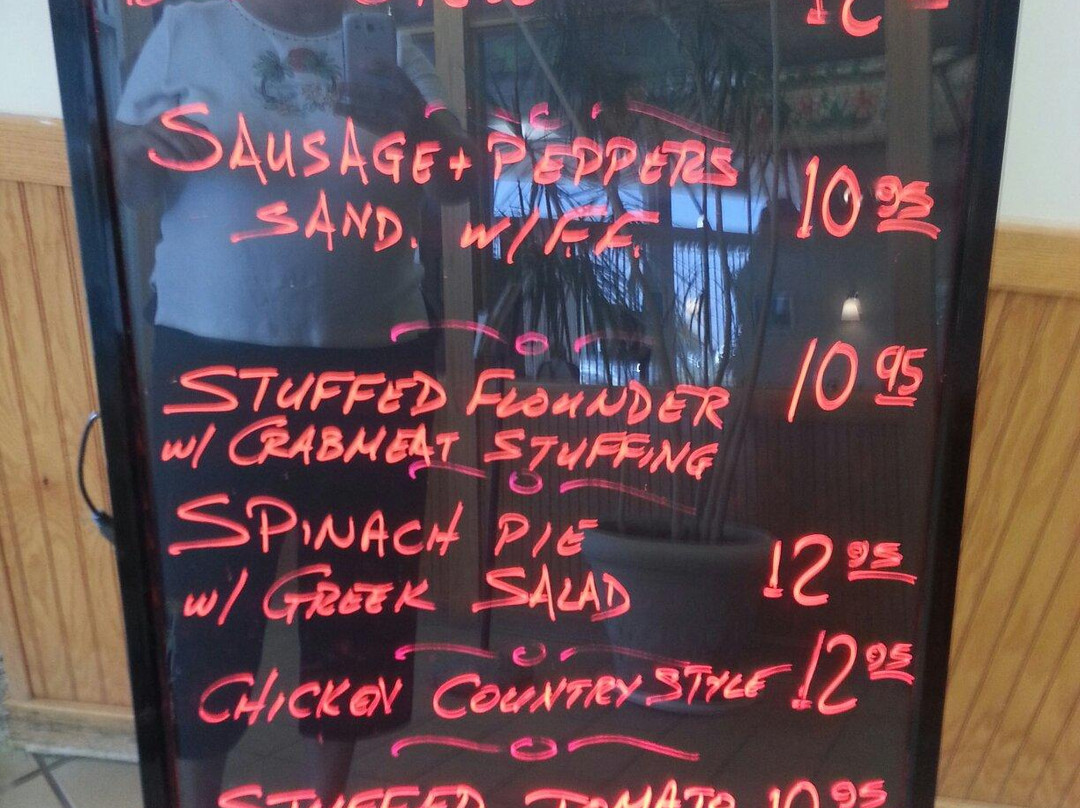 SAUSAGE + PEPPERS
SAND. w/ F.F. 10 95
STUFFED FLOUNDER 10 95
w/ CRABMEAT STUFFING
SPINACH PIE
w/ GREEK SALAD 12 95
CHICKEN COUNTRY STYLE 12 95
STUFFED TOMATO 10 95